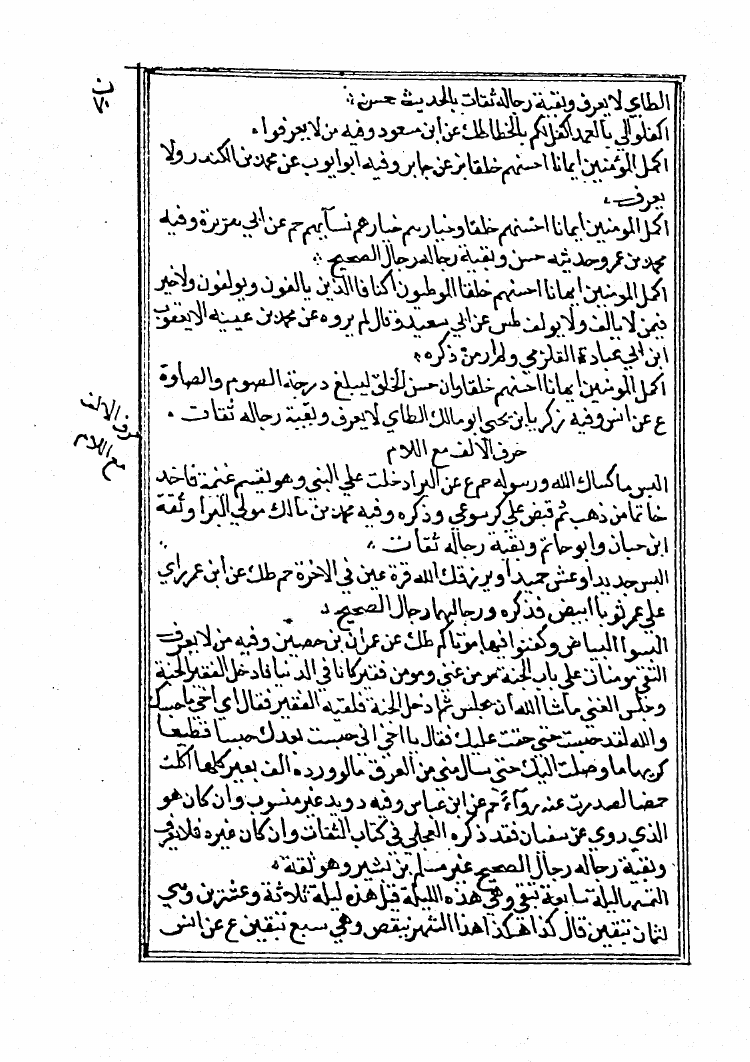 الطاي لا يعرف وبقية رجاله ثقات بالحديث حسن
اكفلوا لي بالعمد اكفل لكم بالخطا طك عن ابن مسعود وفيه من لا يعرفوا
اكمل المؤمنين ايمانا احسنهم خلقا بز عن جابر وفيه ابو ايوب عن محمد بن المنكدر ولا
يعرف
اكمل المومنين ايمانا احسنهم خلقا وخيارهم خيارهم نسآيهم حم عن ابي هريرة وفيه
محمد بن عمرو حديثه حسن وبقية رجاله رجال الصحيح
اكمل المومنين ايمانا احسنهم خلقا الموطيون اكنافا الذين يالفون ويولفون ولا خير
فيمن لا يالف ولا يولف طس عن ابي سعيد وقال لم يروه عن محمد بن عيينه الا يعقوب
ابن ابي عبادة القلزمي ولم ار من ذكره
اكمل المومنين ايمانا احسنهم خلقا وان حسن الخلق ليبلغ درجة الصوم والصلوة
ع عن انس وفيه زكريا بن يحيى ابو مالك الطاي لا يعرف وبقية رجاله ثقات
حرف الالف مع اللام
حرف الالف
مع اللام
البس ما كساك الله ورسوله حم ع عن البرا دخلت علي النبي وهو يقسم غنمة فاخد
خاتما من ذهب ثم قبض علي كرسوعي وذكره وفيه محمد بن مالك مولي البرا وثقه
ابن حبان وابو حاتم وبقية رجاله ثقات
البس جديدا وعش حميدا ويرزقك الله قرة عين في الاخرة حم طك عن ابن عمر راي
علي عمر ثوبا ابيض فذكره ورجالهما رجال الصحيح
البسوا البياض وكفنوا فيها موتاكم طك عن عمران بن حصين وفيه من لا يعرف
التقي مومنان علي باب الجنة مومن غني ومومن فقير كانا في الدنيا فادخل الفقير الجنة
وحبس الغني ما شا الله ان يحبس ثم ادخل الجنة فلقيه الفقير فقال اي اخي ما حبسك
والله لقد حبست حتى خفت عليك فقال يا اخي اني حبست بعدك حبسا فظيعا
كريها ما وصلت اليك حتى سال مني من العرق ما لو ورده الف بعير كلها اكلت
حمضا لصدرت عنه روآء حم عن ابن عباس وفيه دويد غير منسوب وان كان هو
الذي روي عن سفيان فقد ذكره العجلي في كتاب الثقات وان كان غيره فلا يعرف
وبقية رجاله رجال الصحيح غير مسلم بن بشير وهو ثقة
التمسها ليلة سابعة تبقي وهي هذه الليلة قبل هذه ليلة ثلاثة وعشرين وهي
لثمان تبقين قال كذا هكذا هذا الشهر ينقص وهي سبع تبقين ع عن انس